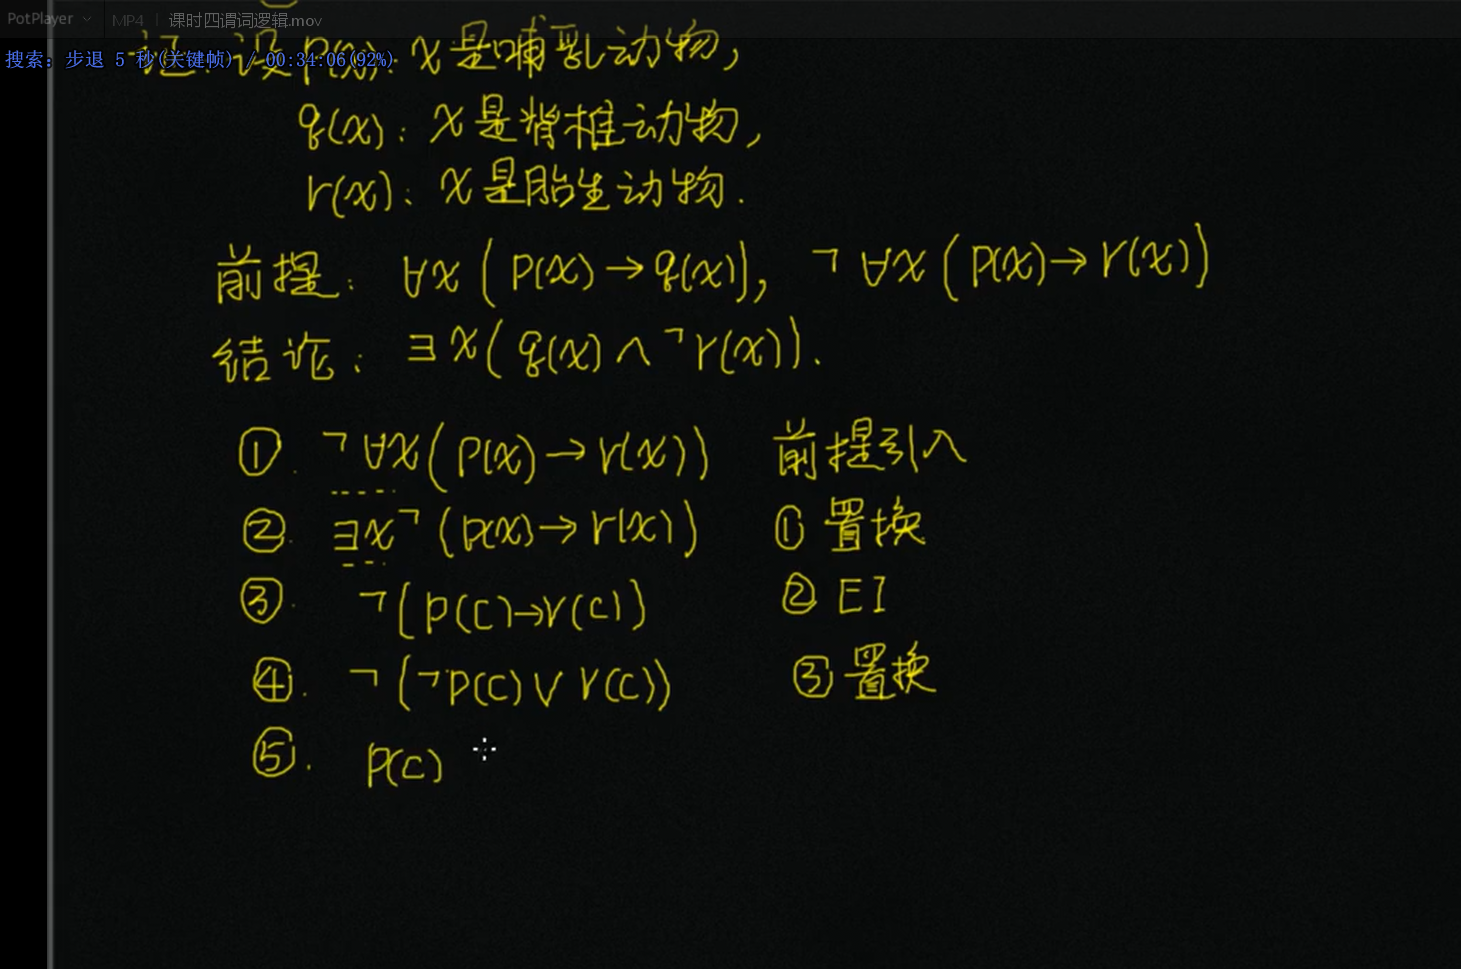 PotPlayer MP4 | 课时四谓词逻辑.mov
搜索: 步退 5 秒(关键帧) / 00:34:06(92%)
证: 设 p(x): x是哺乳动物,
q(x): x是脊椎动物,
r(x): x是胎生动物.
前提: ∀x(p(x)→q(x)), ¬∀x(p(x)→r(x))
结论: ∃x(q(x)∧¬r(x)).
①. ¬∀x(p(x)→r(x)) 前提引入
②. ∃x¬(p(x)→r(x)) ①置换
③. ¬(p(c)→r(c)) ②EI
④. ¬(¬p(c)∨r(c)) ③置换
⑤. p(c)